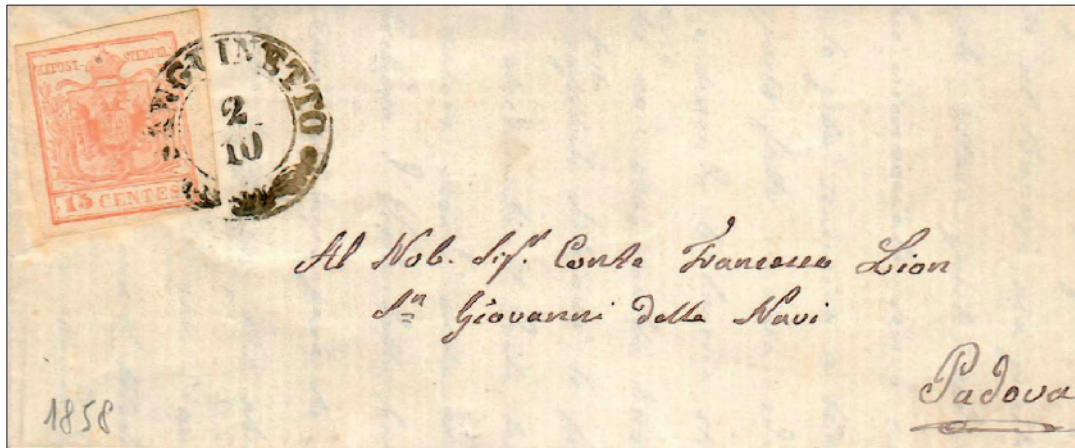 KKPOST-STEMPEL
15 CENTES
SANGUINETTO
2
10
Al Nob. Sig.r Conte Francesco Lion
Sn Giovanni delle Navi
Padova
1858